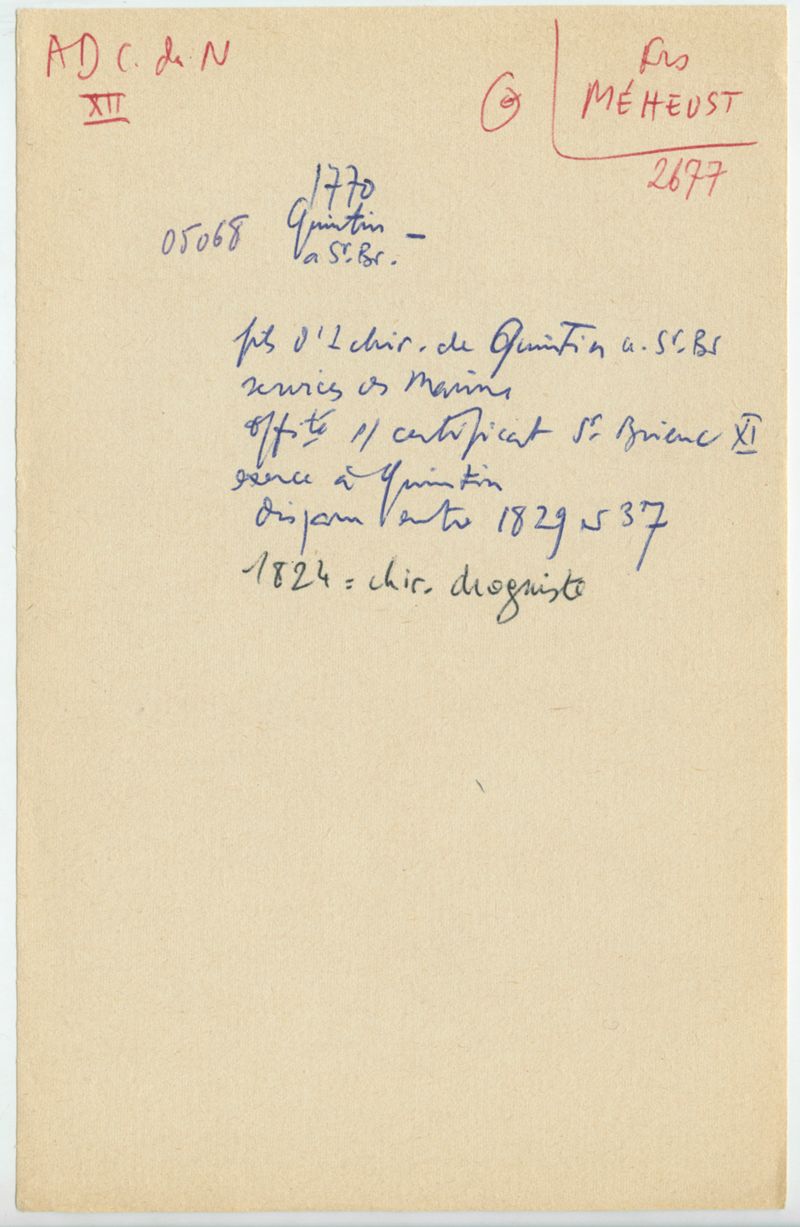 AD C. du N
XII
Frs
MÉHEUST
2677
1770
Quintin –
05068
a St. Br.
fils d'1 chir. de Quintin a. St. Br
services ds Marine
offté s/ certificat St Brieuc XI
exerce à Quintin
disparu entre 1829 et 37
1824 = chir. droguiste